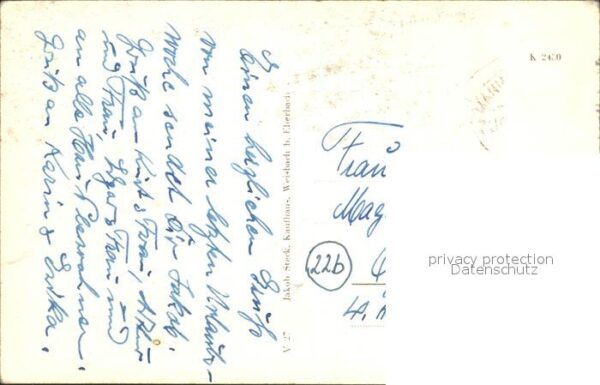 Einen herzlichen Gruß
von meiner letzten Urlaubs-
woche sendet Dir Jakob.
Gruß an Kurt & Frau, Artur
und Frau, Edgar & Frau und
an alle Hausbewohner.
Gruß an Karin & Erika.
V 27 Jakob Steck, Kaufhaus, Weisbach b. Eberbach
K 2420
Frau
Mag
22b
privacy protection
Datenschutz